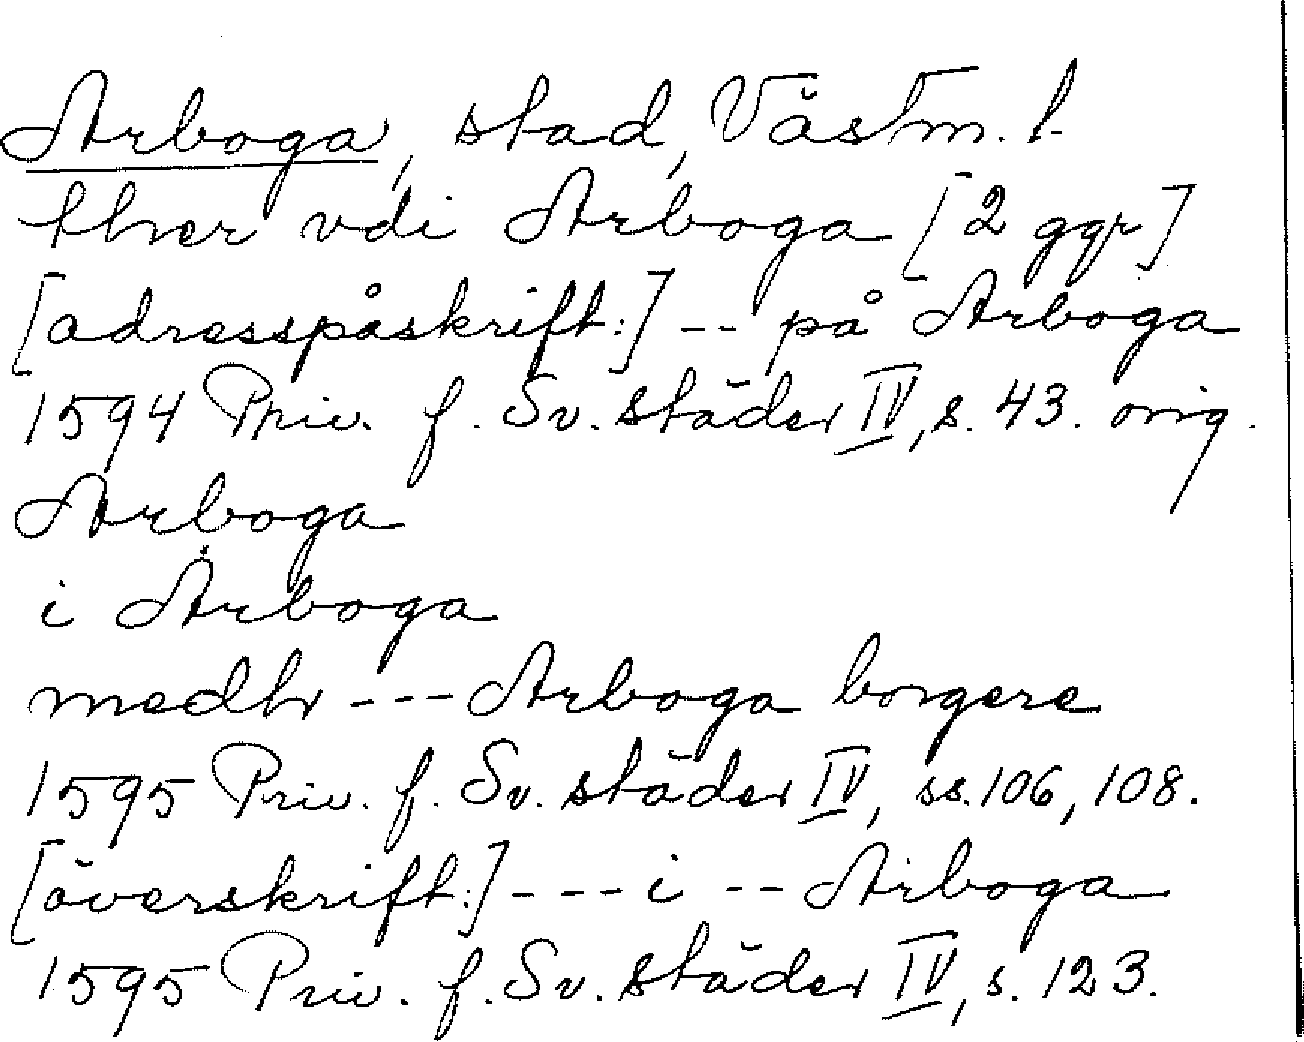 Arboga, stad, Västm. l.
ther vdi Arboga [2 ggr]
[adresspåskrift:] -- på Arboga
1594 Priv. f. Sv. städer IV, s. 43. orig.
Arboga
i Arboga
medh --- Arboga borgere
1595 Priv. f. Sv. städer IV, ss. 106, 108.
[överskrift:] --- i -- Arboga
1595 Priv. f. Sv. städer IV, s. 123.